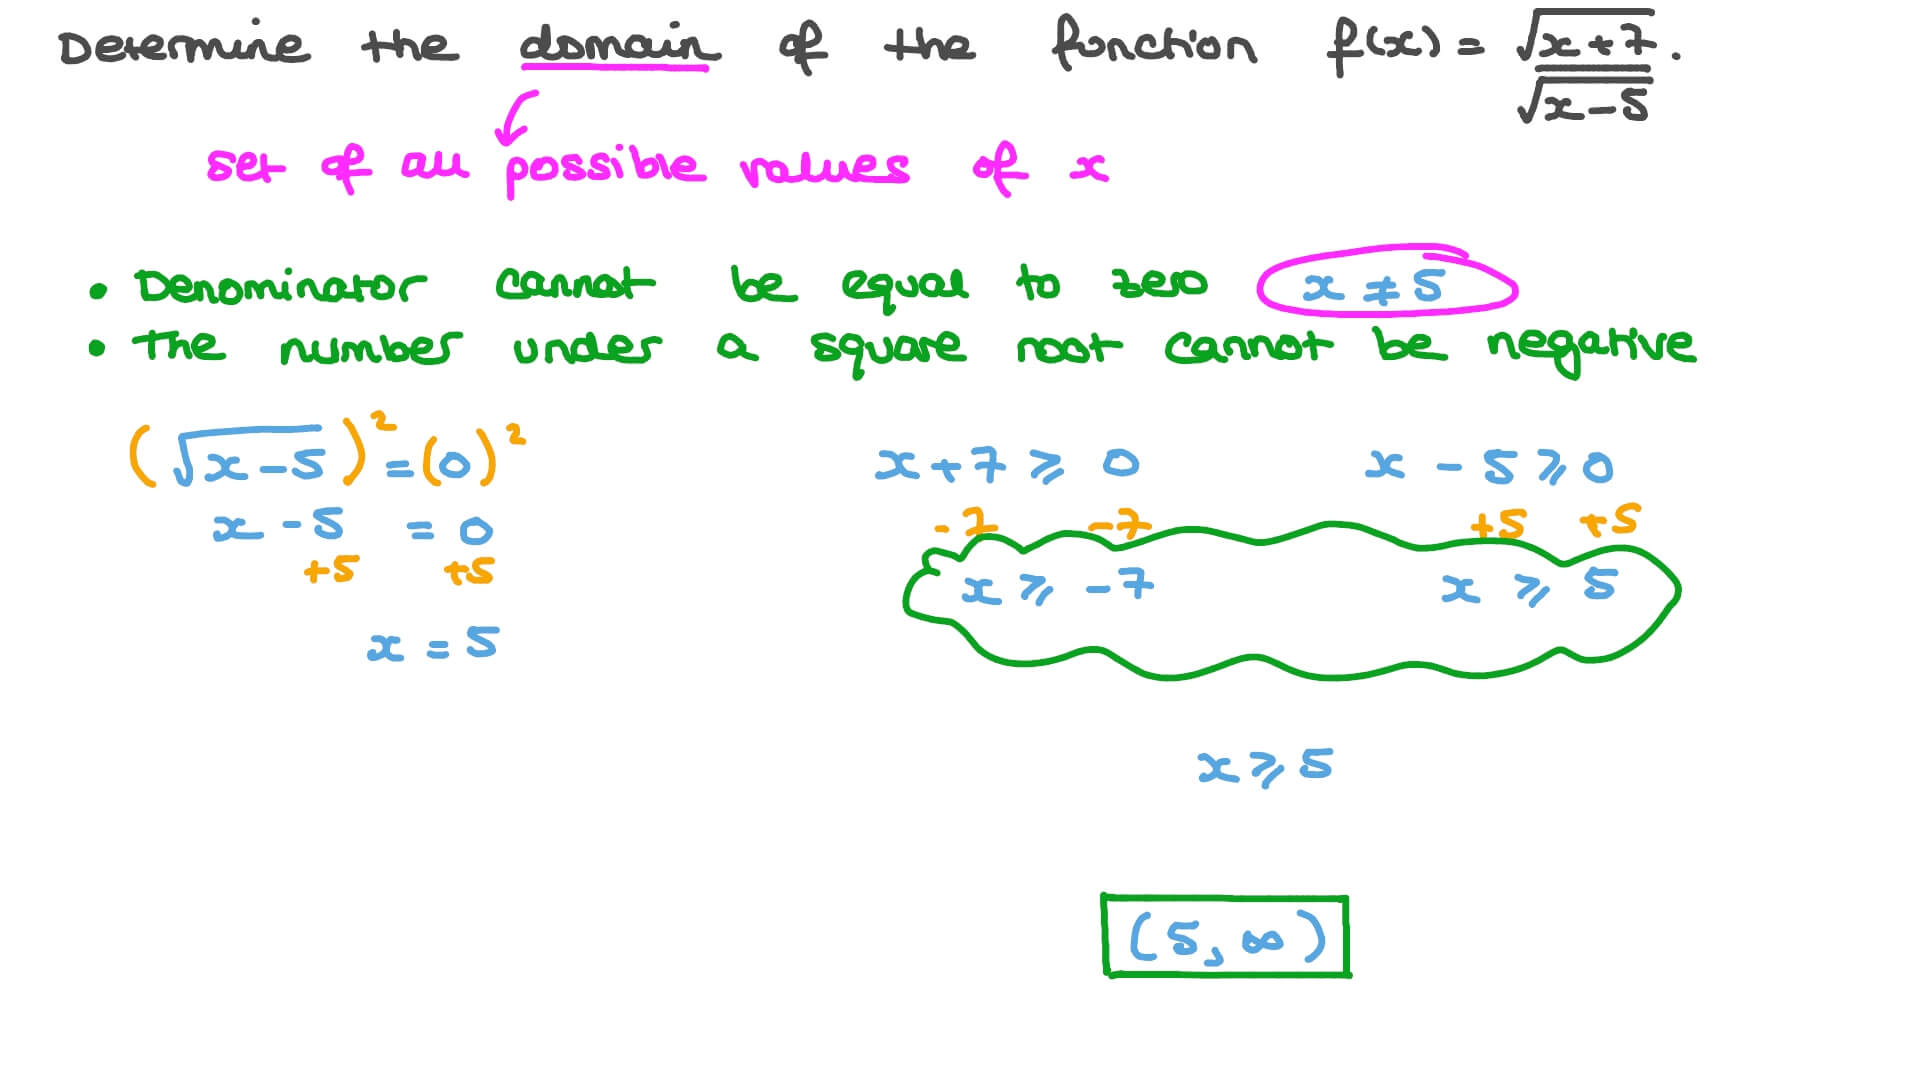 Determine the domain of the function f(x) = √(x+7) / √(x-5).
set of all possible values of x
• Denominator cannot be equal to zero x ≠ 5
• The number under a square root cannot be negative
(√(x-5))² = (0)²
x - 5 = 0
+5 +5
x = 5
x + 7 ⩾ 0
-7 -7
x ⩾ -7
x - 5 ⩾ 0
+5 +5
x ⩾ 5
x ⩾ 5
(5, ∞)